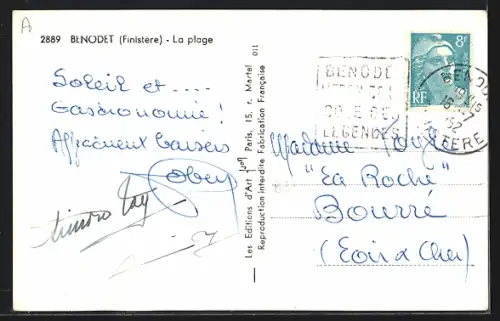 A
2889 BENODET (Finistère) - La plage
Soleil et ....
Gastronomie !
Affectueux baisers
Les Editions d'Art Paris, 15, r. Martel
Reproduction interdite Fabrication Française
011
BENODE
COTE DE
LEGENDES
8F
RF
BENOD
16 -7
52
ISTERE
Madame
"La Roche"
Bourré
(Loir & Cher)